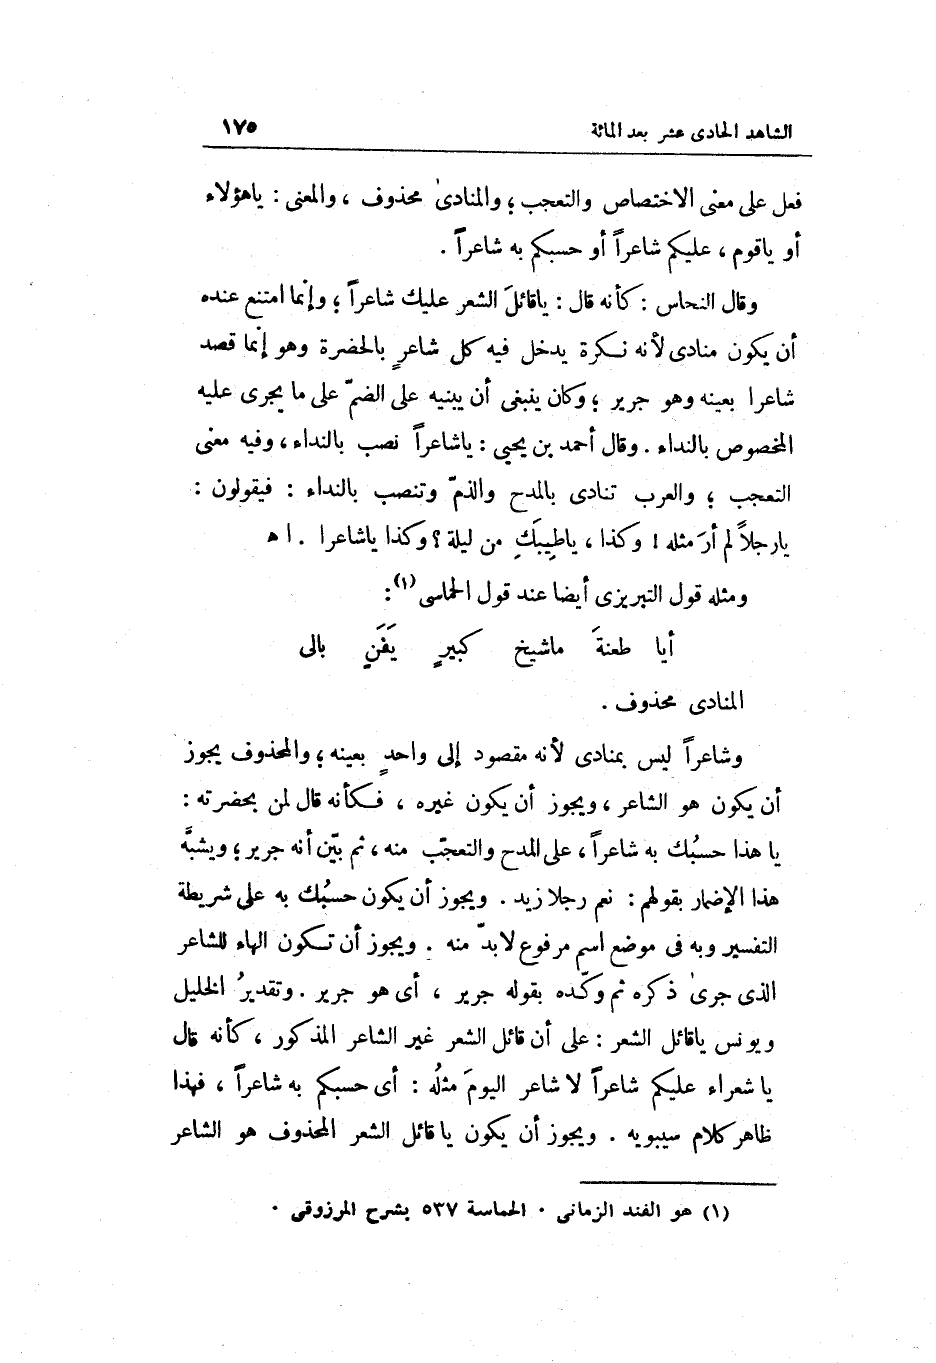 الشاهد الحادى عشر بعد المائة ١٧٥
فعل على معنى الاختصاص والتعجب ؛ والمنادىٰ محذوف ، والمعنى : ياهؤلاء
أو ياقوم ، عليكم شاعراً أو حسبكم به شاعراً .
وقال النحاس : كأنه قال : ياقائلَ الشعر عليك شاعراً ؛ وإنما امتنع عنده
أن يكون منادى لأنه نكرة يدخل فيه كل شاعرٍ بالحضرة وهو إنما قصد
شاعرا بعينه وهو جرير ؛ وكان ينبغى أن يبنيه على الضمّ على ما يجرى عليه
المخصوص بالنداء . وقال أحمد بن يحيى : ياشاعراً نصب بالنداء ، وفيه معنى
التعجب ؛ والعرب تنادى بالمدح والذمّ وتنصب بالنداء : فيقولون :
يارجلاً لم أرَ مثله ! وكذا ، ياطيبَكِ من ليلة ؟ وكذا ياشاعرا . ا ه
ومثله قول التبريزى أيضا عند قول الحماسى (١) :
أيا طعنةَ ماشيخ كبيرٍ يَفَنٍ بالى
المنادى محذوف .
وشاعراً ليس بمنادى لأنه مقصود إلى واحدٍ بعينه ؛ والمحذوف يجوز
أن يكون هو الشاعر ، ويجوز أن يكون غيره ، فكأنه قال لمن بحضرته :
يا هذا حسبُك به شاعراً ، على المدح والتعجّب منه ، ثم بيّن أنه جرير ؛ ويشبَّه
هذا الإضمار بقولهم : نعم رجلا زيد . ويجوز أن يكون حسبُك به على شريطة
التفسير وبه فى موضع اسم مرفوع لابدّ منه . ويجوز أن تكون الهاء للشاعر
الذى جرىٰ ذكره ثم وكّده بقوله جرير ، أى هو جرير . وتقديرُ الخليل
ويونس ياقائل الشعر : على أن قائل الشعر غير الشاعر المذكور ، كأنه قال
يا شعراء عليكم شاعراً لا شاعر اليومَ مثلُه : أى حسبكم به شاعراً ، فهذا
ظاهر كلام سيبويه . ويجوز أن يكون يا قائل الشعر المحذوف هو الشاعر
(١) هو الفند الزمانى . الحماسة ٥٣٧ بشرح المرزوقى .